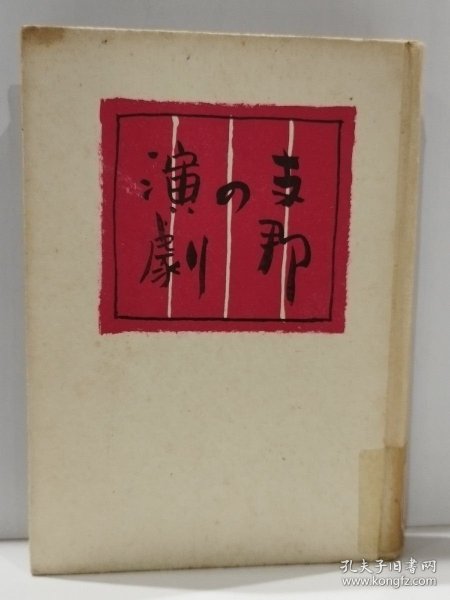 支那
の
演劇
孔夫子旧书网
www.kongfz.com